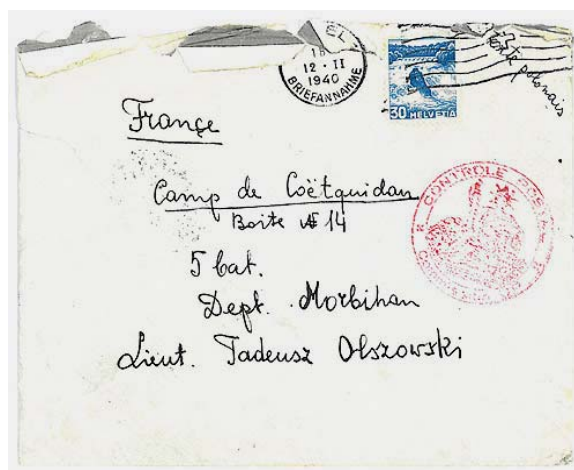 18
12 · II
1940
BRIEFANNAHME
30 HELVETIA
Texte polonais
France
Camp de Coëtquidan
Boite № 14
5 bat.
Dept. Morbihan
Lieut. Tadeusz Olszowski
CONTROLE POSTAL